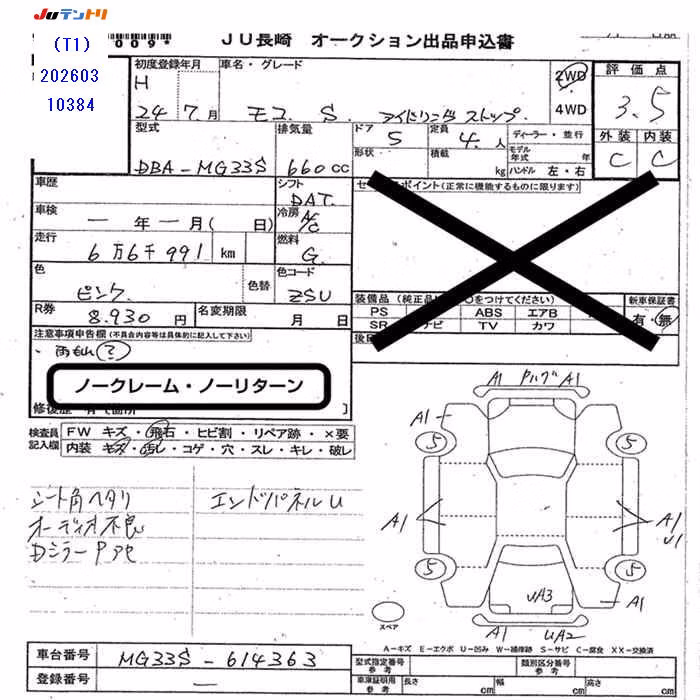 JUテントリ
(T1)
202603
10384
009*
JU長崎 オークション出品申込書
初度登録年月
車名・グレード
H
24 7.月
モコ S. アイドリングストップ.
2WD
4WD
評価点
3.5
外装 内装
C C
型式
DBA-MG33S
排気量
660cc
ドア 5
定員 4.人
ディーラー・並行
形状
積載 kg
モデル年式 年
ハンドル 左・右
車歴
シフト
DAT.
セールスポイント(正常に機能するものに限ります)
車検
一 年 一 月( 日)
冷房
A/C
走行
6万6千991 km
燃料
G.
色
ピンク.
色替
色コード
ZSU
R券
8.930 円
名変期限
月 日
装備品
つけてください)
新車保証書
有・無
PS ABS エアB
SR TV カワ
注意事項申告欄(不具合内容等は具体的に記入して下さい)
・雨もれ(?)
ノークレーム・ノーリターン
検査員記入欄
FW キズ・飛石・ヒビ割・リペア跡・×要
内装 キズ・汚レ・コゲ・穴・スレ・キレ・破レ
シート角ヘタリ
エンドパネルU
オーディオ不良
A1 A1
A1
5 5
A1
A1
U1
5 5
UA3
A1
A1 UA2
スペア
A-キズ E-エクボ U-凹み W-補修跡 S-サビ C-腐食 XX-交換済
車台番号
MG33S-614363
登録番号
—
型式指定番号
参考
類別区分番号
参考
車庫証明用
参考
長さ cm
幅 cm
高さ cm